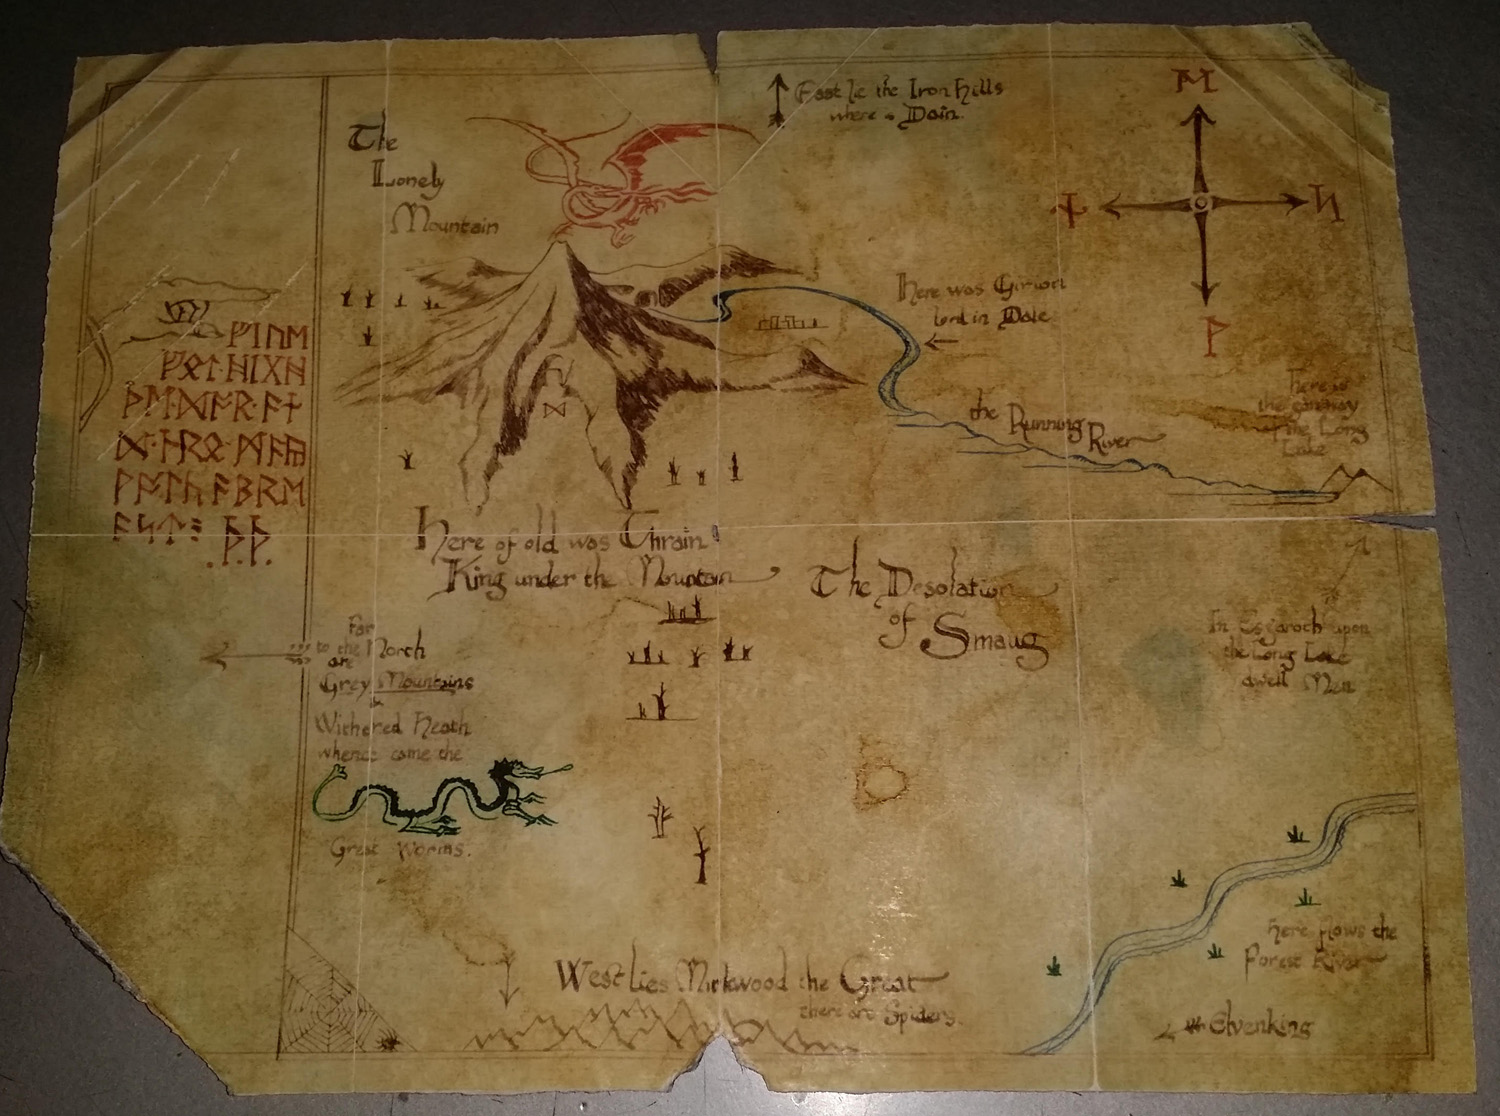 East lie the Iron Hills
where is Dain.
ᛖ
The
Lonely
Mountain
ᚾ
ᛋ
ᚹ
Here was Girion
lord in Dale
ᚠᛁᚢᛖ
ᚠᛟᛏ·ᚻᛁᚷᚻ
ᚦᛖ·ᛞᚩᚱ·ᚪᚾ
ᛞ·ᚦᚱᛟ·ᛗᚪᚣ
ᚹᚩᛚᚳ·ᚪᛒᚱᛖ
ᚪᛋᛏ
.ᚦ.ᚦ.
ᛞ
the Running River
There is
the
of the Long
Lake
Here of old was Thrain
King under the Mountain
The Desolation
of Smaug
Far
to the North
are
Grey Mountains
&
Withered Heath
whence came the
Great Worms.
In Esgaroth upon
the Long Lake
dwell Men
West lies Mirkwood the Great
there are Spiders.
here flows the
Forest River
Elvenking